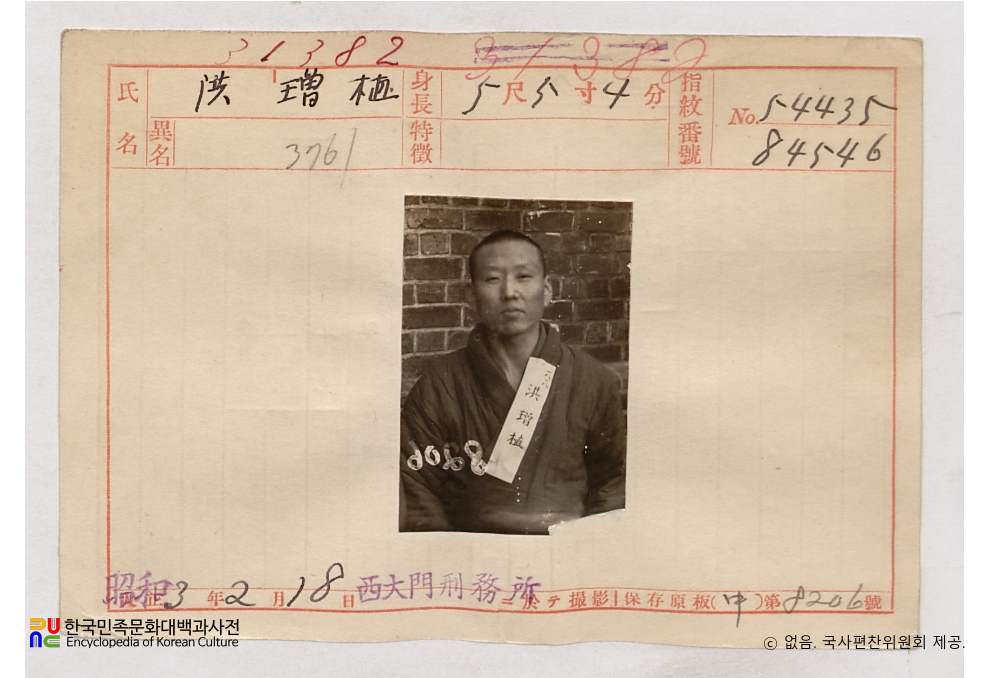 31382 31382
氏名 洪 璔 植 身長 5尺5寸4分 指紋番號 No. 54435
異名 3761 特徵 84546
洪璔植
昭和3年2月18日西大門刑務所ニ於テ撮影 保存原板(中)第8206號
한국민족문화대백과사전
Encyclopedia of Korean Culture
© 없음. 국사편찬위원회 제공.